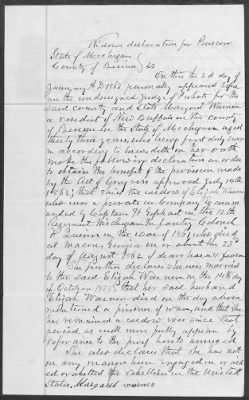 Widows declaration for Pension
State of Michigan (
County of Berrien ) SS
On this the 2d day of
January A D 1865 personally appeared before
me the undersigned judge of Probate for the
said County and State Margaret Warner
a resident of New Buffalo in the county
of Berrien in the State of Michigan aged
thirty three years, who being first duly sworn
according to law doth on her oath
make the following declaration in order
to obtain the benefit of the provision made
by the Act of Congress approved July 14th
1862, that she is the widow of Elijah Warner
who was a private in Company commanded by Captain in the 12th
Regiment Michigan Infantry Colonel
in the war of 1861 who died
at Macon Georgia on or about the 23d
of August 1862
She further declares she was married
to the said Elijah Warner on the day
of October 1850 that her said husband
Elijah Warner died on the day above
mentioned a prisoner of war, and that she
has remained a widow ever since that
period as will more fully appear by
reference to the proof hereto annexed
She also declares that she has not
in any manner been engaged in or aided or abetted the rebellion in the United
States. Margaret warner